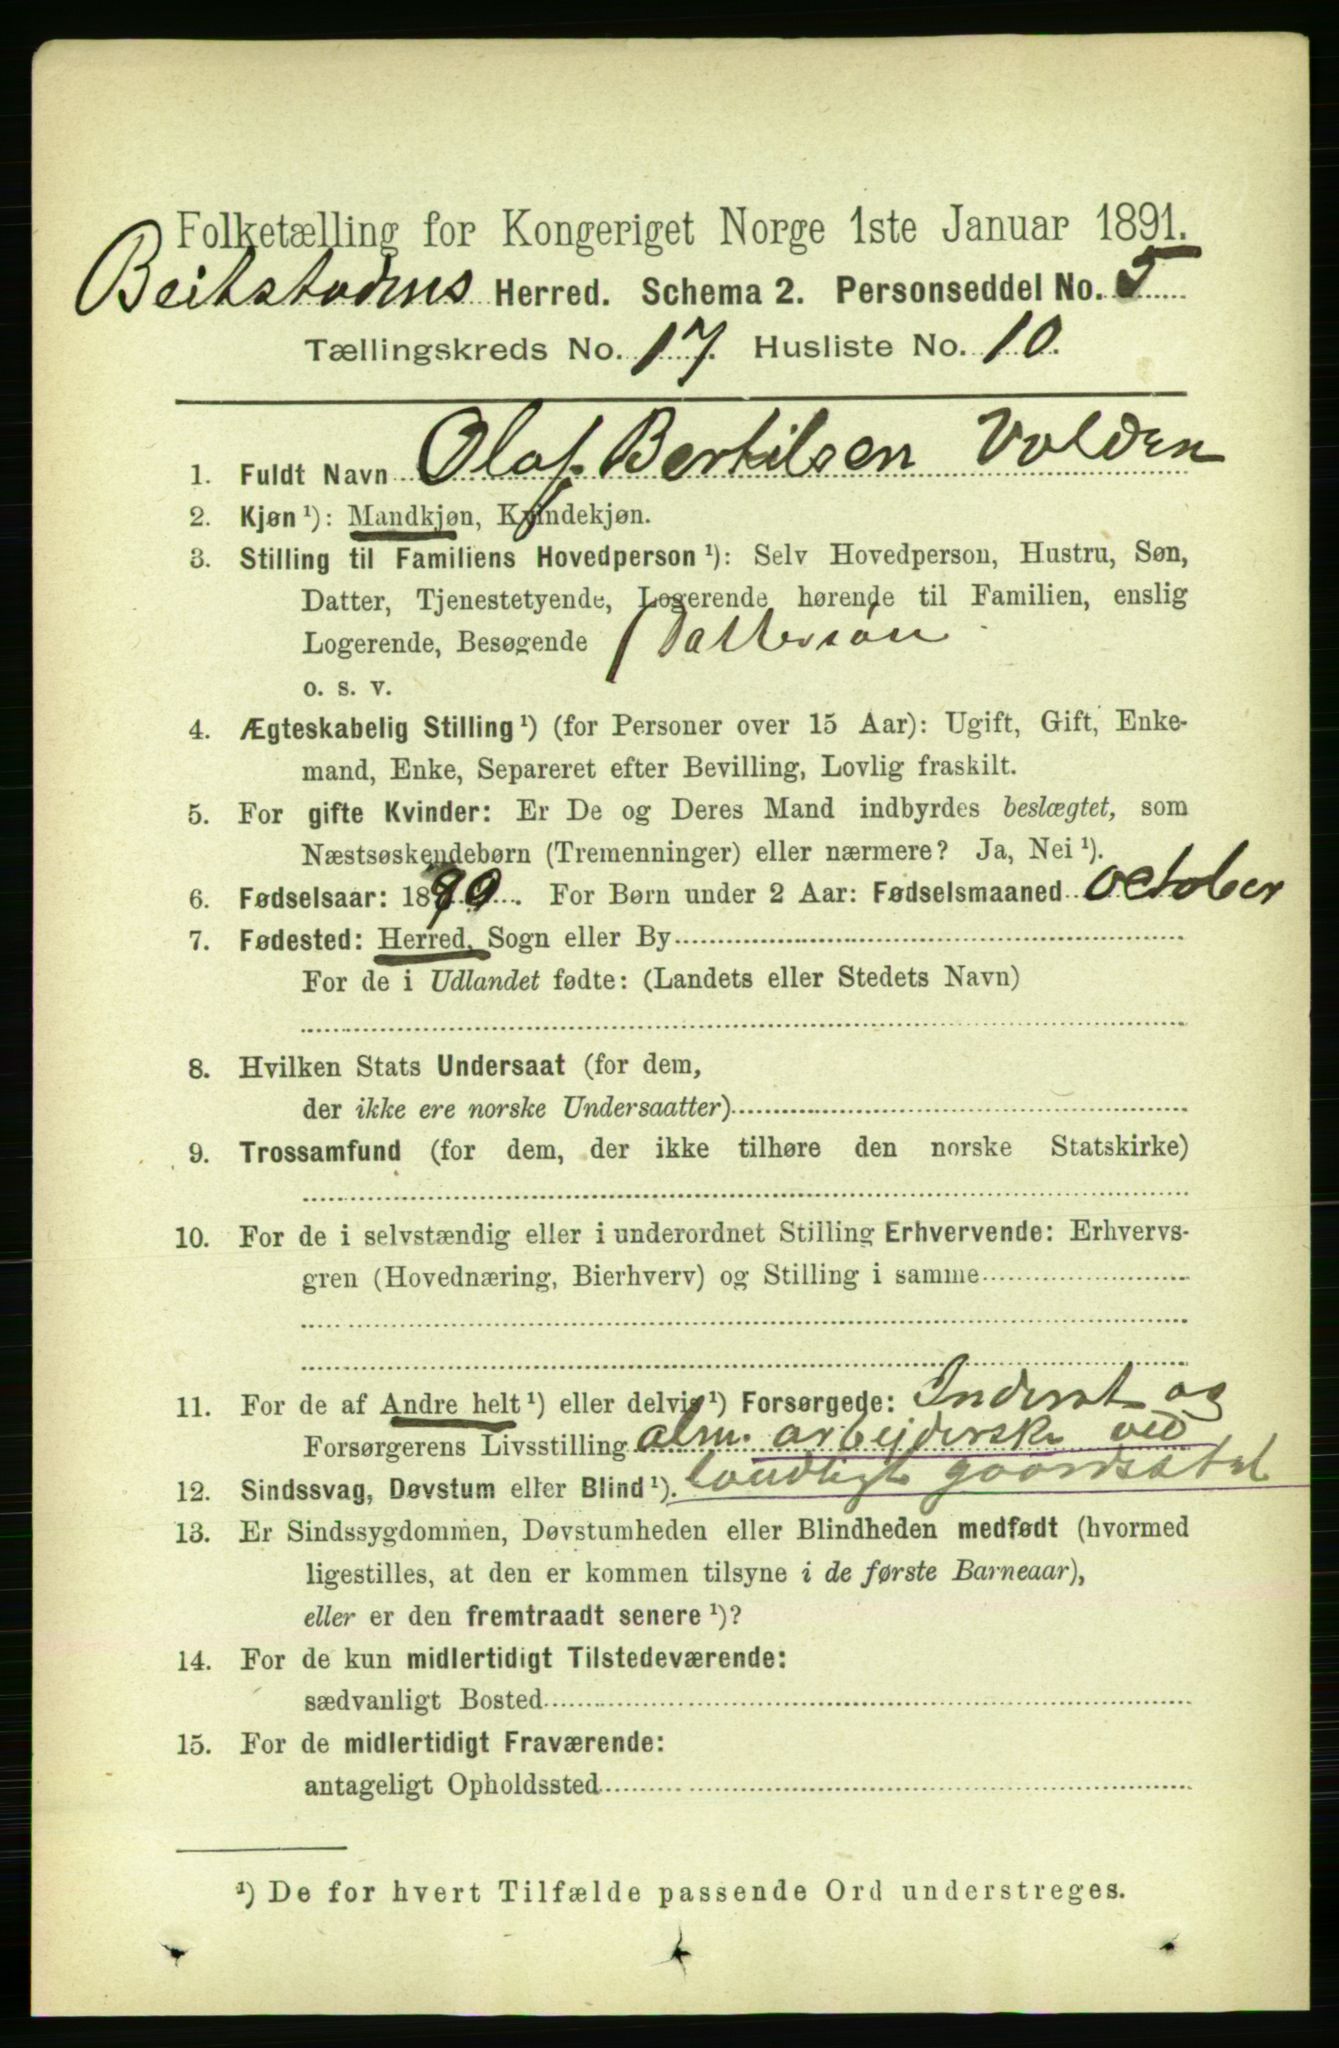 Folketælling for Kongeriget Norge 1ste Januar 1891.
Beitstadens Herred. Schema 2. Personseddel No. 5
Tællingskreds No. 17. Husliste No. 10.
1. Fuldt Navn Olaf Bertilsen Volden
2. Kjøn ¹): Mandkjøn, Kvindekjøn.
3. Stilling til Familiens Hovedperson ¹): Selv Hovedperson, Hustru, Søn,
Datter, Tjenestetyende, Logerende hørende til Familien, enslig
Logerende, Besøgende Dattersøn
o. s. v.
4. Ægteskabelig Stilling ¹) (for Personer over 15 Aar): Ugift, Gift, Enke-
mand, Enke, Separeret efter Bevilling, Lovlig fraskilt.
5. For gifte Kvinder: Er De og Deres Mand indbyrdes beslægtet, som
Næstsøskendebørn (Tremenninger) eller nærmere? Ja, Nei ¹).
6. Fødselsaar: 1890. For Børn under 2 Aar: Fødselsmaaned october
7. Fødested: Herred, Sogn eller By
For de i Udlandet fødte: (Landets eller Stedets Navn)
8. Hvilken Stats Undersaat (for dem,
der ikke ere norske Undersaatter)
9. Trossamfund (for dem, der ikke tilhøre den norske Statskirke)
10. For de i selvstændig eller i underordnet Stilling Erhvervende: Erhvervs-
gren (Hovednæring, Bierhverv) og Stilling i samme
11. For de af Andre helt ¹) eller delvis ¹) Forsørgede: Inderst og
Forsørgerens Livsstilling alm. arbejderske ved
12. Sindssvag, Døvstum eller Blind ¹). landligt gaardsstel
13. Er Sindssygdommen, Døvstumheden eller Blindheden medfødt (hvormed
ligestilles, at den er kommen tilsyne i de første Barneaar),
eller er den fremtraadt senere ¹)?
14. For de kun midlertidigt Tilstedeværende:
sædvanligt Bosted
15. For de midlertidigt Fraværende:
antageligt Opholdssted
¹) De for hvert Tilfælde passende Ord understreges.